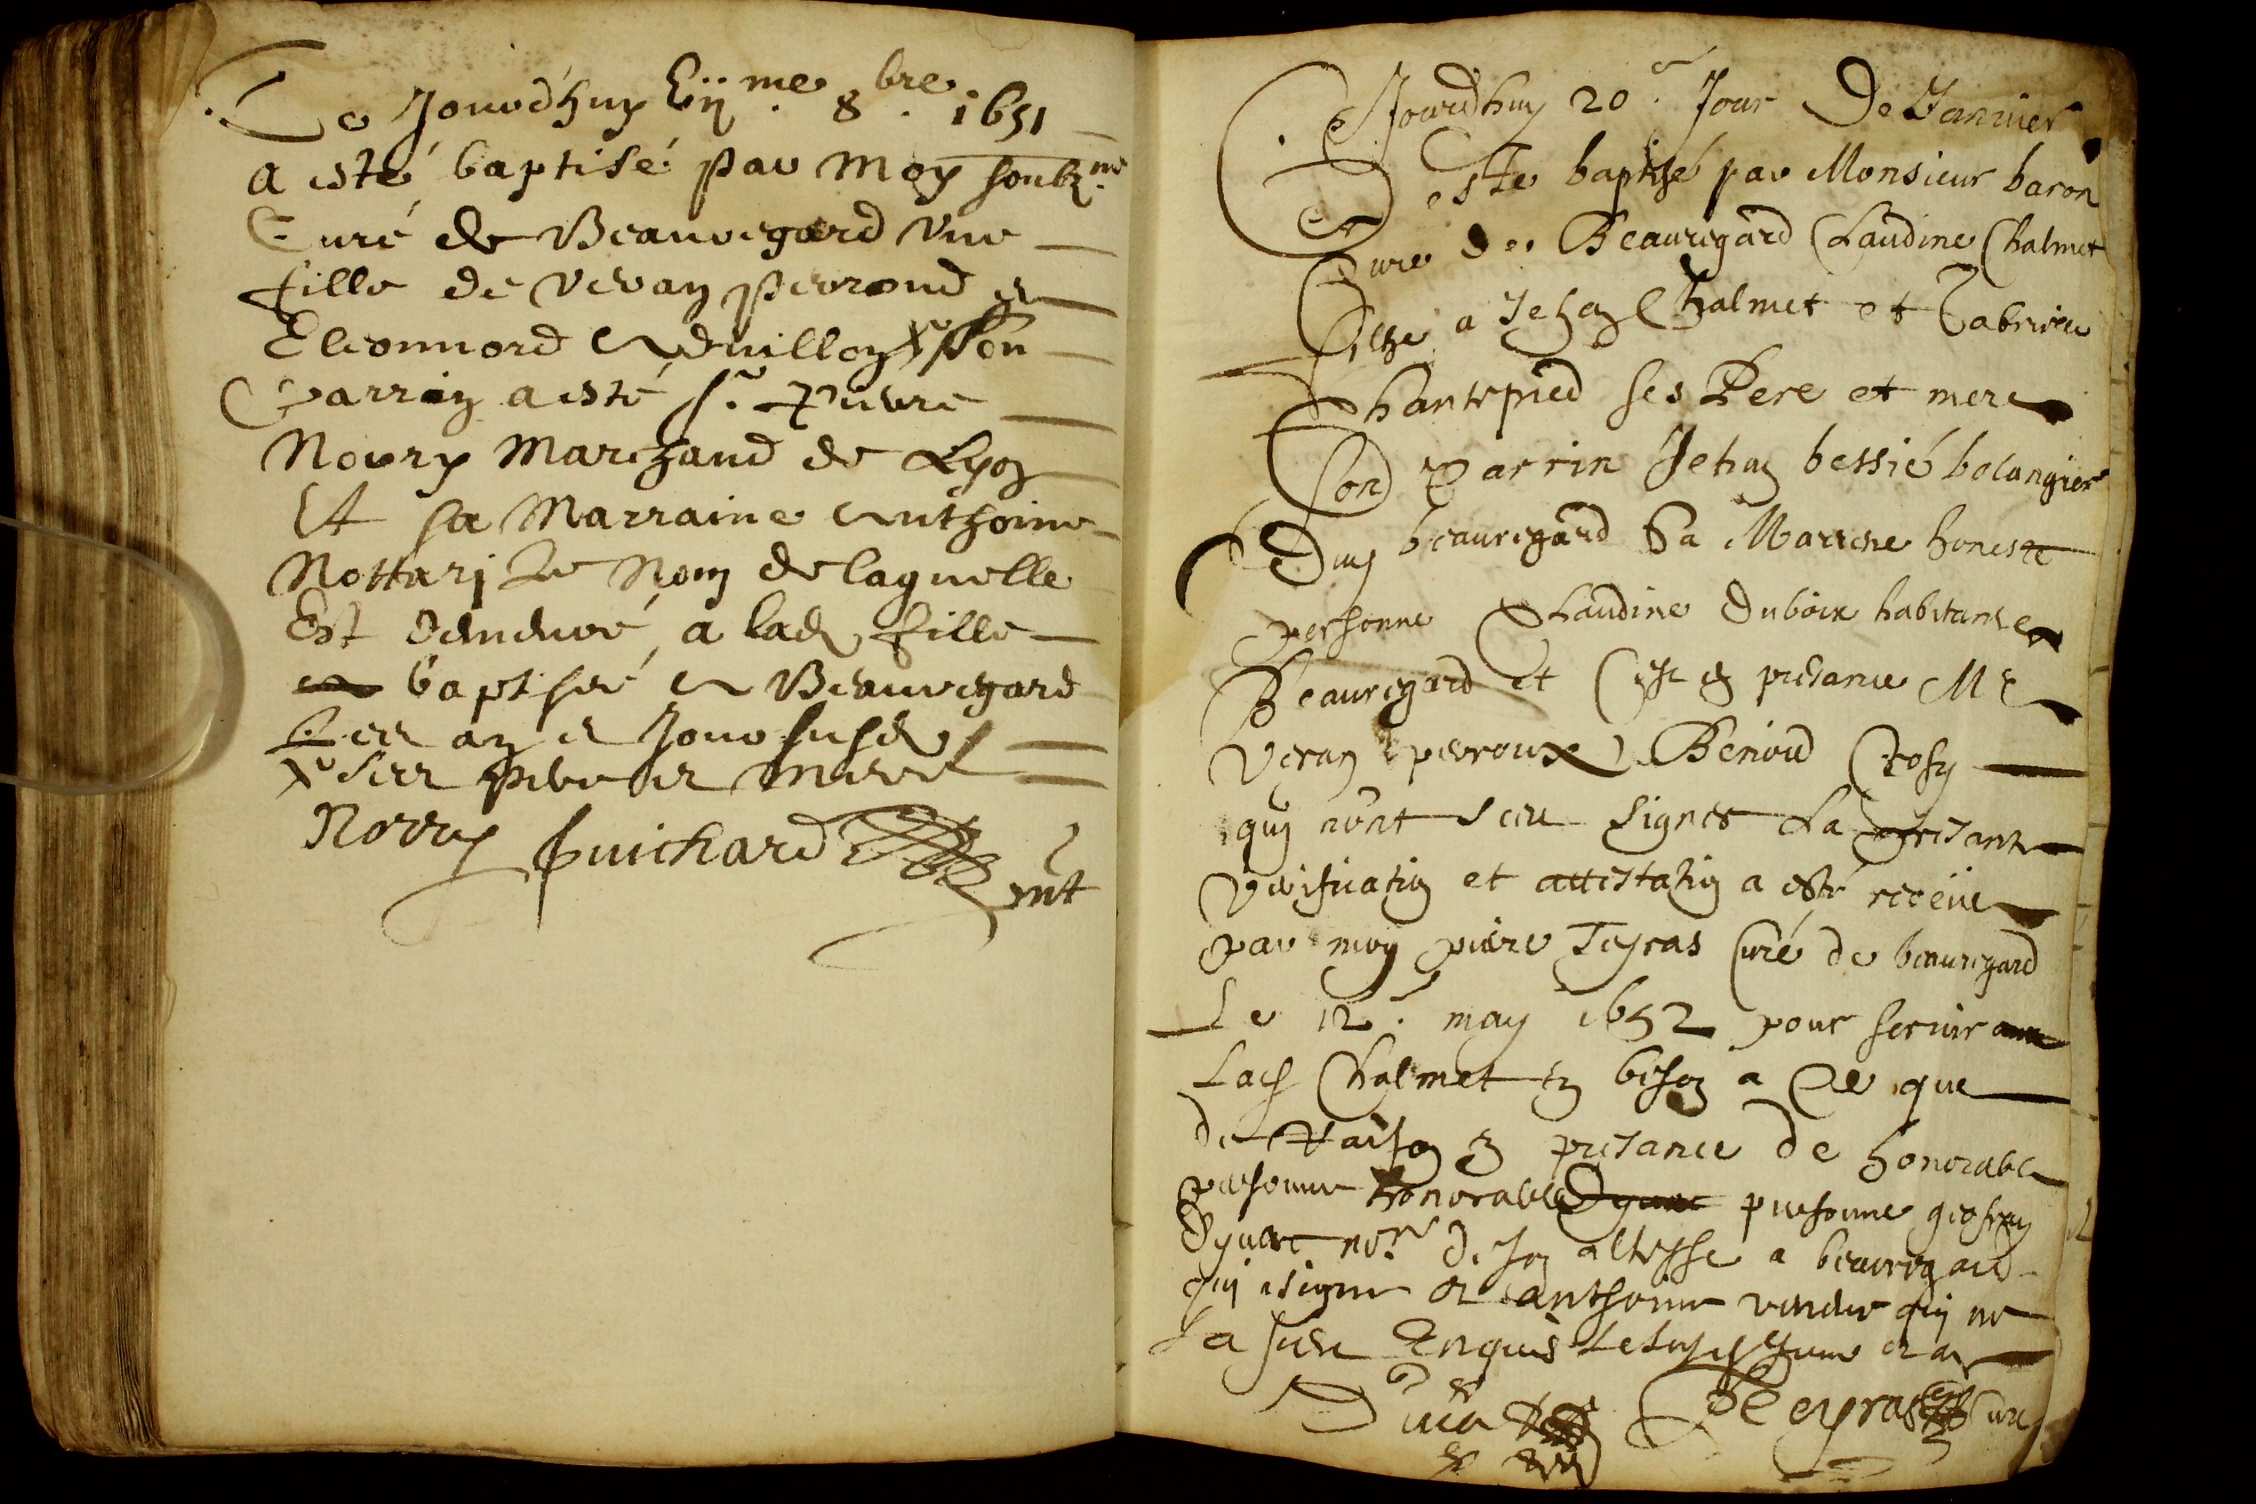 Ce Jourd'huy Vij.me 8.bre 1651
a esté baptisé par moy soubz.né
Curé de Beauregard une
fille de Veran Perroud et
Eleonnord Son
parrin a esté s.r Pierre
Noury Marchand de Lyon
Et sa Marraine Anthoine
Nottari Le Nom de laquelle
Est demeuré a lad fille
baptisée a Beauregard
Les an et Jour susd
ses pere et mere
Noury Guichard
Ce Jourdhuy 20.e Jour De Janvier
este baptisé par Monsieur baron
Cure de Beauregard Claudine Chalmet
filhe a Jehan Chalmet et
Chantepied ses Pere et mere
Son Parrin Jehan bessié bolangier
Du beauregard Sa Marrene honeste
personne Claudine Duboix habitante
Beauregard et C'est en presance Me
Veran perroux Benoid
quy n'ont sceu signer La presante
verification et attestation a esté receüe
par moy pierre Teyras Curé de beauregard
Le 12.e may 1652 pour servir
Lad Chalmet en beson a Ce que
de raison en presance de honorable
personne honorable personne
Dyvert no.re de son altesse a beauregard
qui a signe et anthoine qui ne
La sceu Enquis
Teyras Cure